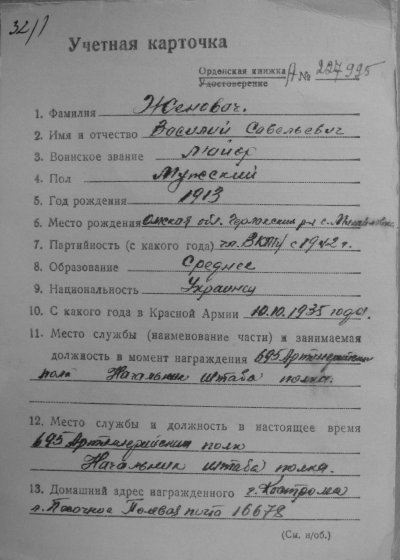 32/1
Учетная карточка
Орденская книжка
Удостоверение А № 227995
1. Фамилия Женович.
2. Имя и отчество Василий Савельевич
3. Воинское звание Майор
4. Пол Мужской
5. Год рождения 1913
6. Место рождения Омская обл. р-н с.
7. Партийность (с какого года) чл. ВКП/б с 1942 г.
8. Образование Среднее
9. Национальность Украинец
10. С какого года в Красной Армии 10.10.1935 года.
11. Место службы (наименование части) и занимаемая
должность в момент награждения 695 Артиллерийский
полк Начальник штаба полка.
12. Место службы и должность в настоящее время
695 Артиллерийский полк
Начальник штаба полка.
13. Домашний адрес награжденного г. Кострома
п. Песочное Полевая почта 16678
(См. н/об.)